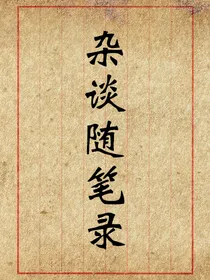 杂谈随笔录